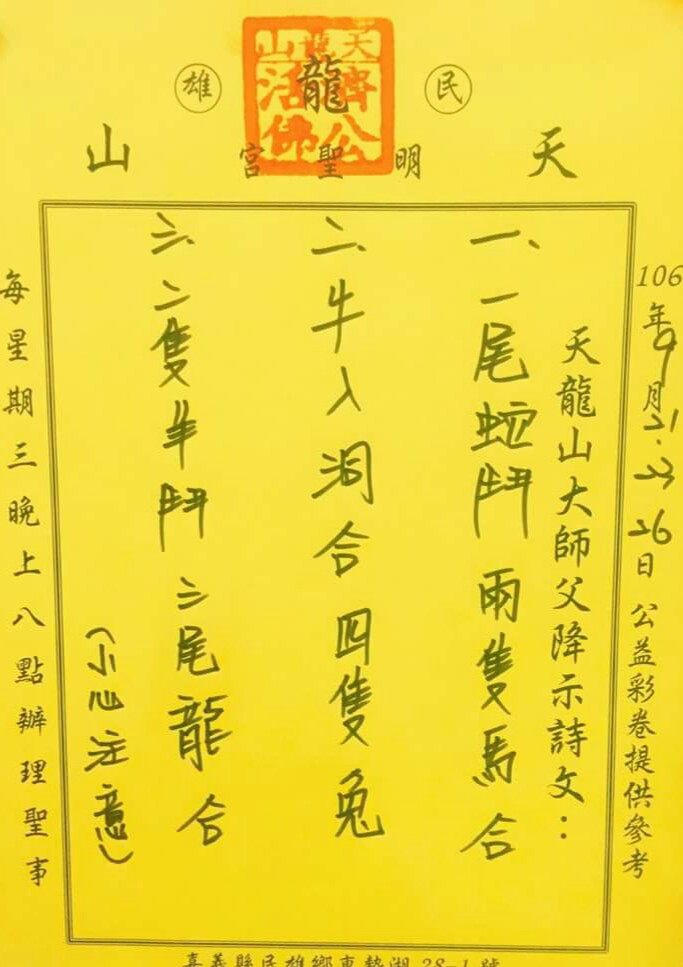 民雄
天龍山
明聖宮
天龍山
濟公
活佛
106年9月21.23.26日公益彩卷提供參考
天龍山大師父降示詩文：
一、一尾蛇鬥兩隻馬合
二、牛入洞合四隻兔
三、二隻羊鬥三尾龍合
（小心注意）
每星期三晚上八點辦理聖事
嘉義縣民雄鄉東勢湖28-1號